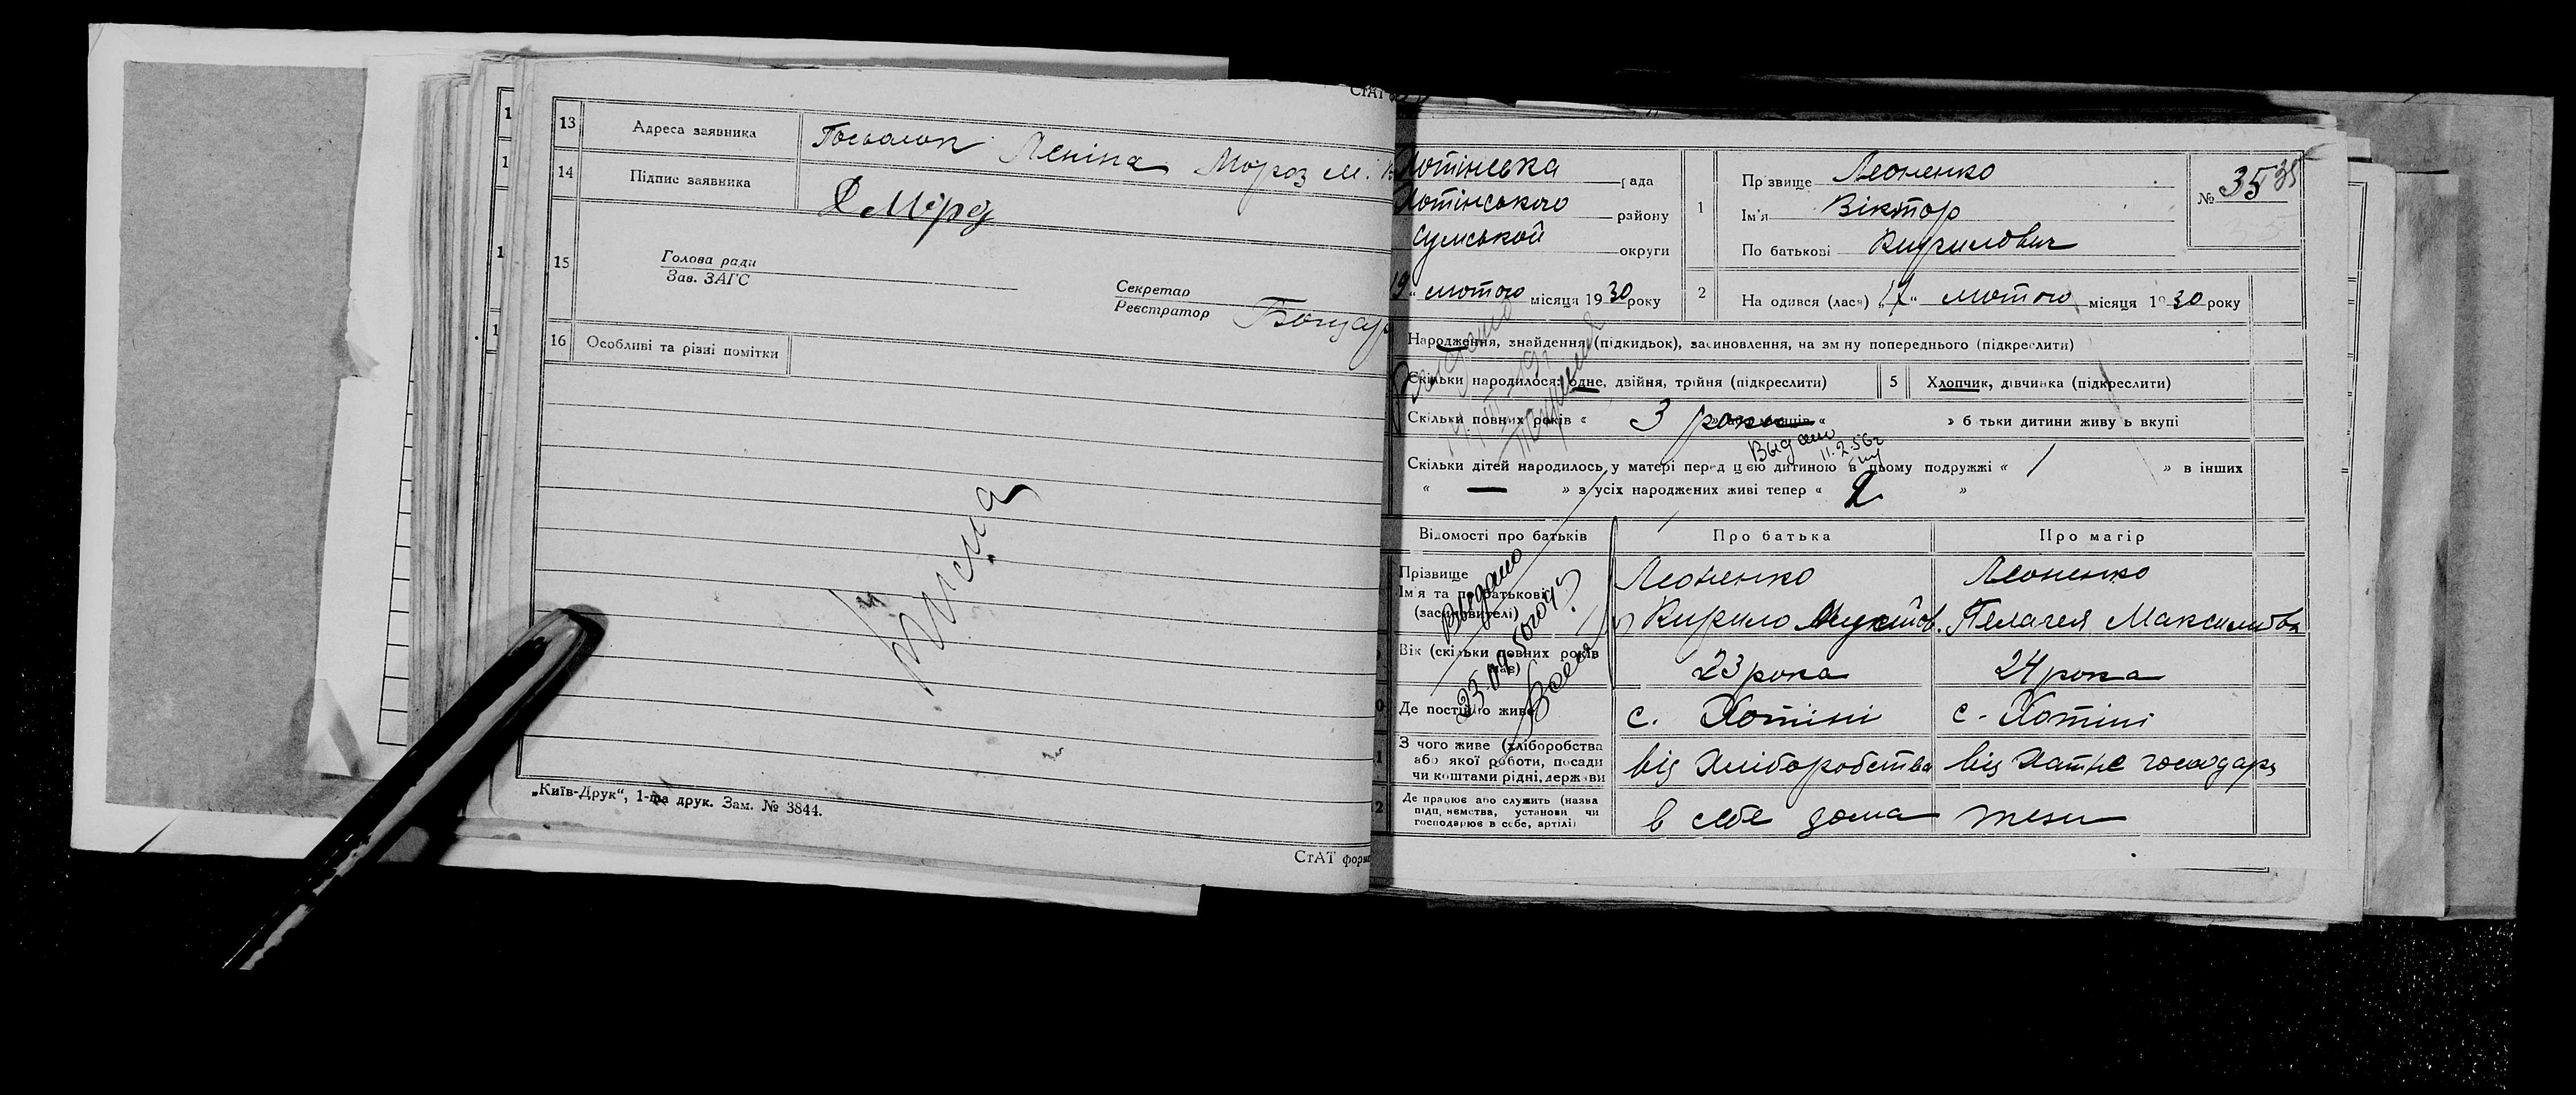 13 Адреса заявника Посьолок Леніна Мороз М.
14 Підпис заявника
15 Голова ради
Зав. ЗАГС
Секретар
Реєстратор
16 Особливі та різні помітки
„Київ-Друк“, 1-ша друк. Зам. № 3844.
СтАТ форм
СтАТ
Хотінська рада
Хотінського району
Сумської округи
19 „ лютого місяця 1930 року
1 Прізвище Леоненко
Ім'я Віктор
По батькові Кирилович
№ 35 35
2 На одився (лася) „ “ лютого місяця 1930 року
Народження, знайдення (підкидьок), засиновлення, на зм ну попереднього (підкреслити)
Скільки народилося: одне, двійня, трійня (підкреслити)
5 Хлопчик, дівчинка (підкреслити)
Скільки повних років « 3 роки « » б тьки дитини живу ь вкупі
Выдано
11.2.56г
Скільки дітей народилось у матері перед цією дитиною в цьому подружжі « 1 » в інших
« — » з усіх народжених живі тепер « 2 »
Відомості про батьків
Про батька
Про матір
Прізвище
Ім'я та по батькові
(засиновителі)
Леоненко
Кирило
Леоненко
Пелагея Максимовна
Выдано
Вік (скільки повних років має)
23 рока
24 рока
Де постійно живе
с. Хотіні
с. Хотіні
З чого живе (хліборобства
або якої роботи, посади
чи коштами рідні, держави
від Хліборобства
від Хатнє господар
Де працює або служить (назва
підприємства, установи чи
господарює в себе, артілі)
в себе дома